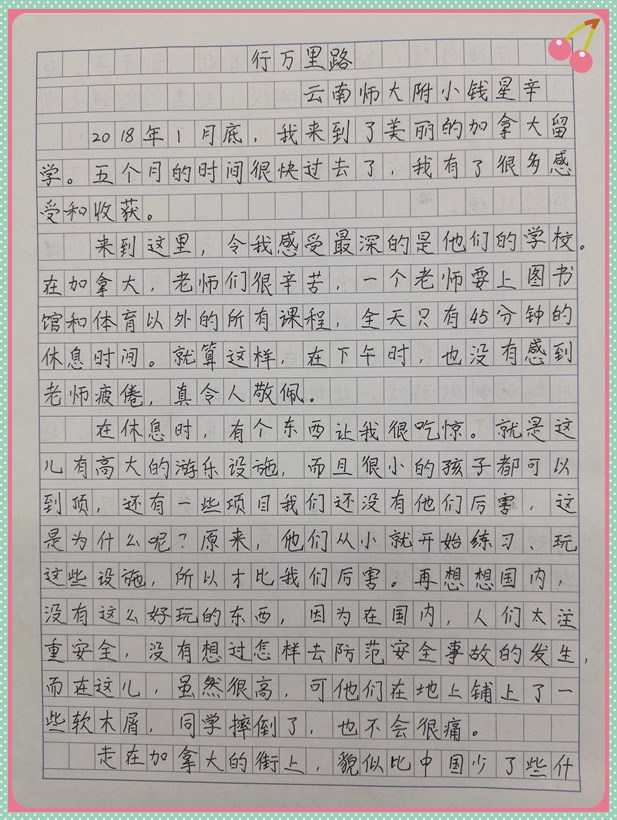 行万里路
云南师大附小钱星辛
2018年1月底，我来到了美丽的加拿大留
学。五个月的时间很快过去了，我有了很多感
受和收获。
来到这里，令我感受最深的是他们的学校。
在加拿大，老师们很辛苦，一个老师要上图书
馆和体育以外的所有课程，全天只有45分钟的
休息时间。就算这样，在下午时，也没有感到
老师疲倦，真令人敬佩。
在休息时，有个东西让我很吃惊。就是这
儿有高大的游乐设施，而且很小的孩子都可以
到顶，还有一些项目我们还没有他们厉害，这
是为什么呢？原来，他们从小就开始练习、玩
这些设施，所以才比我们厉害。再想想国内，
没有这么好玩的东西，因为在国内，人们太注
重安全，没有想过怎样去防范安全事故的发生，
而在这儿，虽然很高，可他们在地上铺上了一
些软木屑，同学摔倒了，也不会很痛。
走在加拿大的街上，貌似比中国少了些什